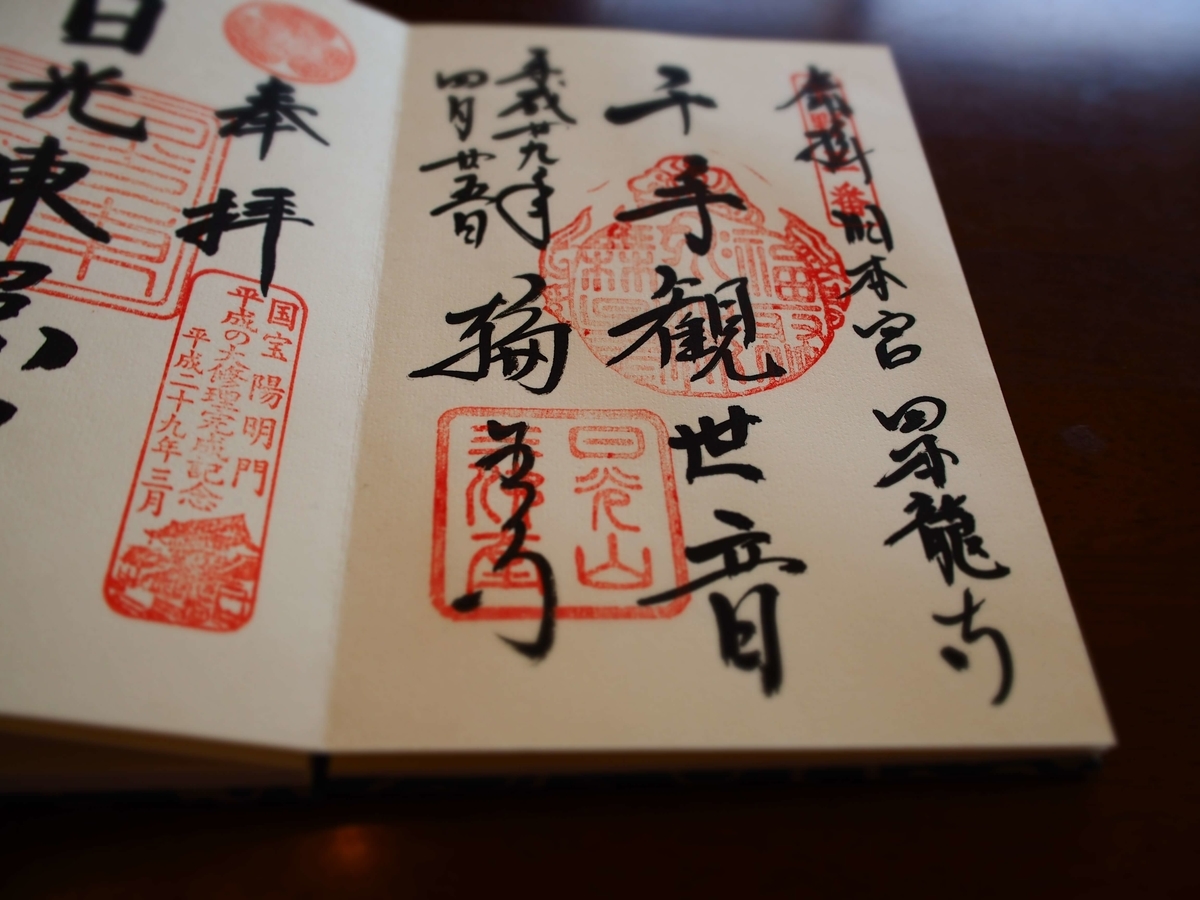 奉拝 旧本宮 四本龍寺
千手観世音
輪王寺
平成廿九年
四月廿五日
日光山
奉拝
国宝 陽明門
平成の大修理完成記念
平成二十九年三月
日光東照